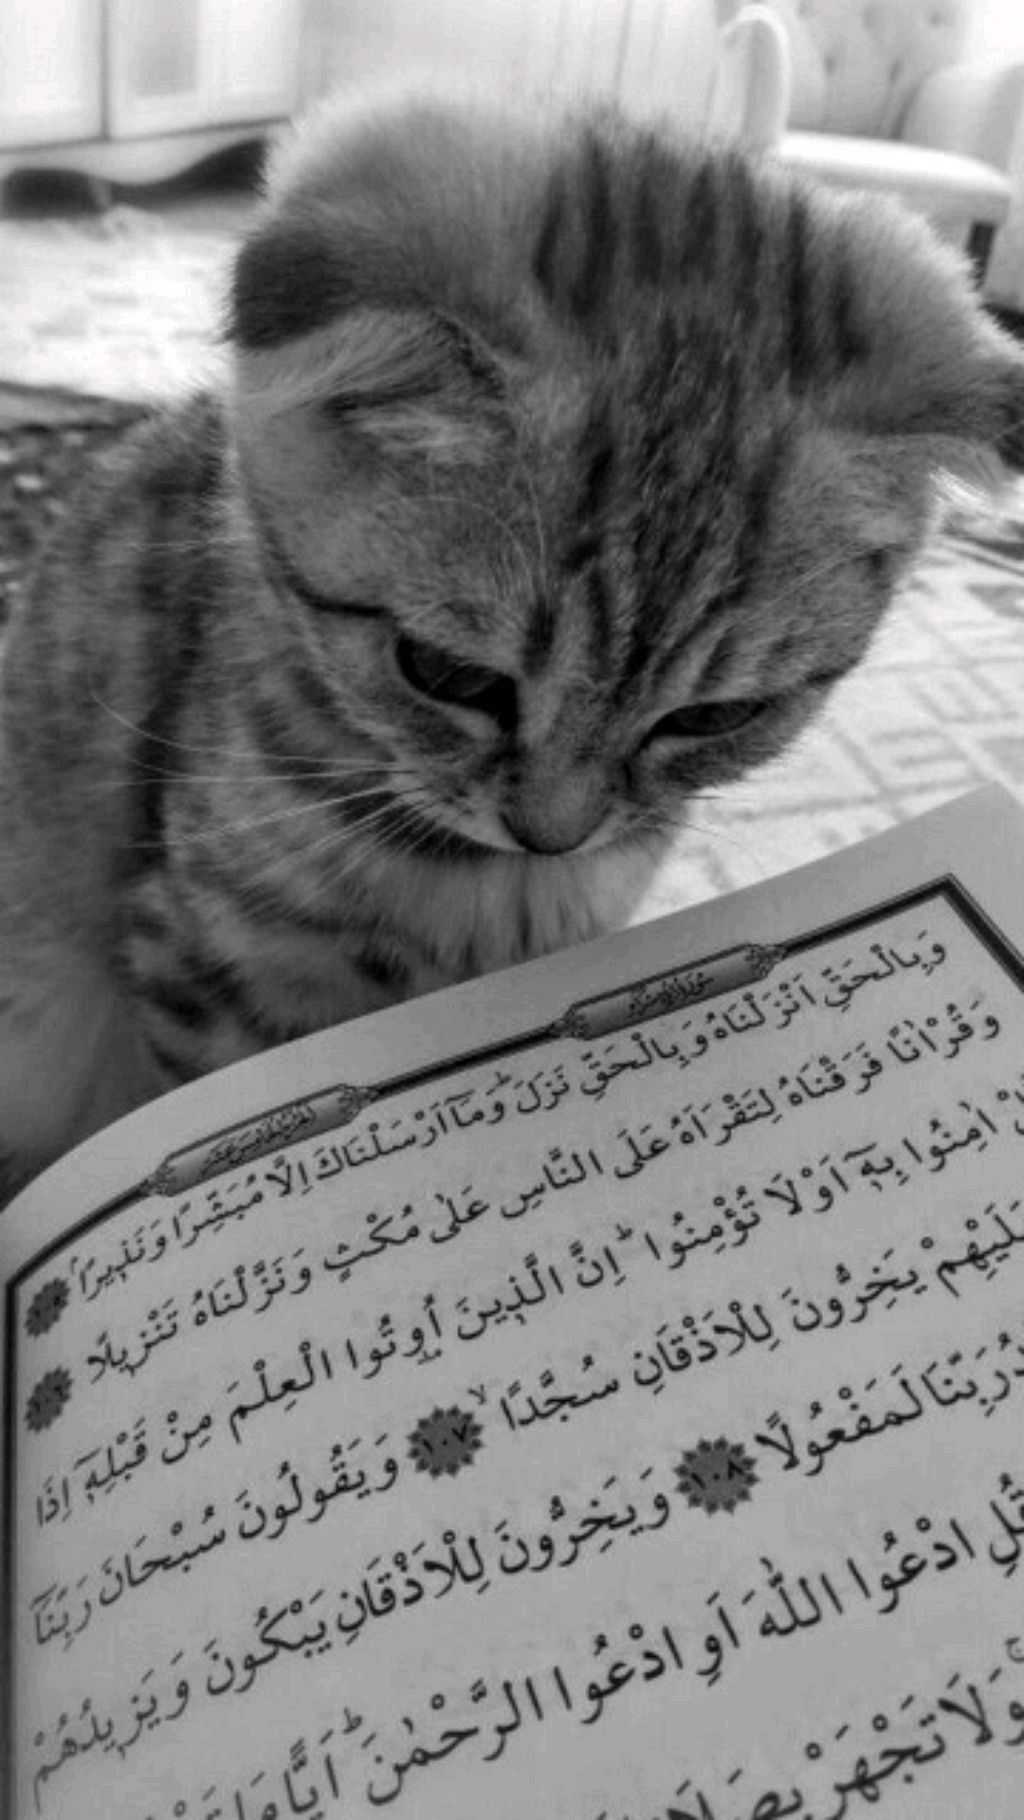 وَبِالْحَقِّ اَنْزَلْنَاهُ وَبِالْحَقِّ نَزَلَۜ وَمَٓا اَرْسَلْنَاكَ اِلَّا مُبَشِّرًا وَنَذ۪يرًاۢ
وَقُرْاٰنًا فَرَقْنَاهُ لِتَقْرَاَهُ عَلَى النَّاسِ عَلٰى مُكْثٍ وَنَزَّلْنَاهُ تَنْز۪يلًا
اٰمِنُوا بِه۪ٓ اَوْ لَا تُؤْمِنُواۜ اِنَّ الَّذ۪ينَ اُو۫تُوا الْعِلْمَ مِنْ قَبْلِه۪ٓ اِذَا
يَخِرُّونَ لِلْاَذْقَانِ سُجَّدًاۙ ١٠٧ وَيَقُولُونَ سُبْحَانَ رَبِّنَٓا
رَبِّنَا لَمَفْعُولًا ١٠٨ وَيَخِرُّونَ لِلْاَذْقَانِ يَبْكُونَ وَيَز۪يدُهُمْ
قُلِ ادْعُوا اللّٰهَ اَوِ ادْعُوا الرَّحْمٰنَۜ اَيًّا مَا
وَلَا تَجْهَرْ